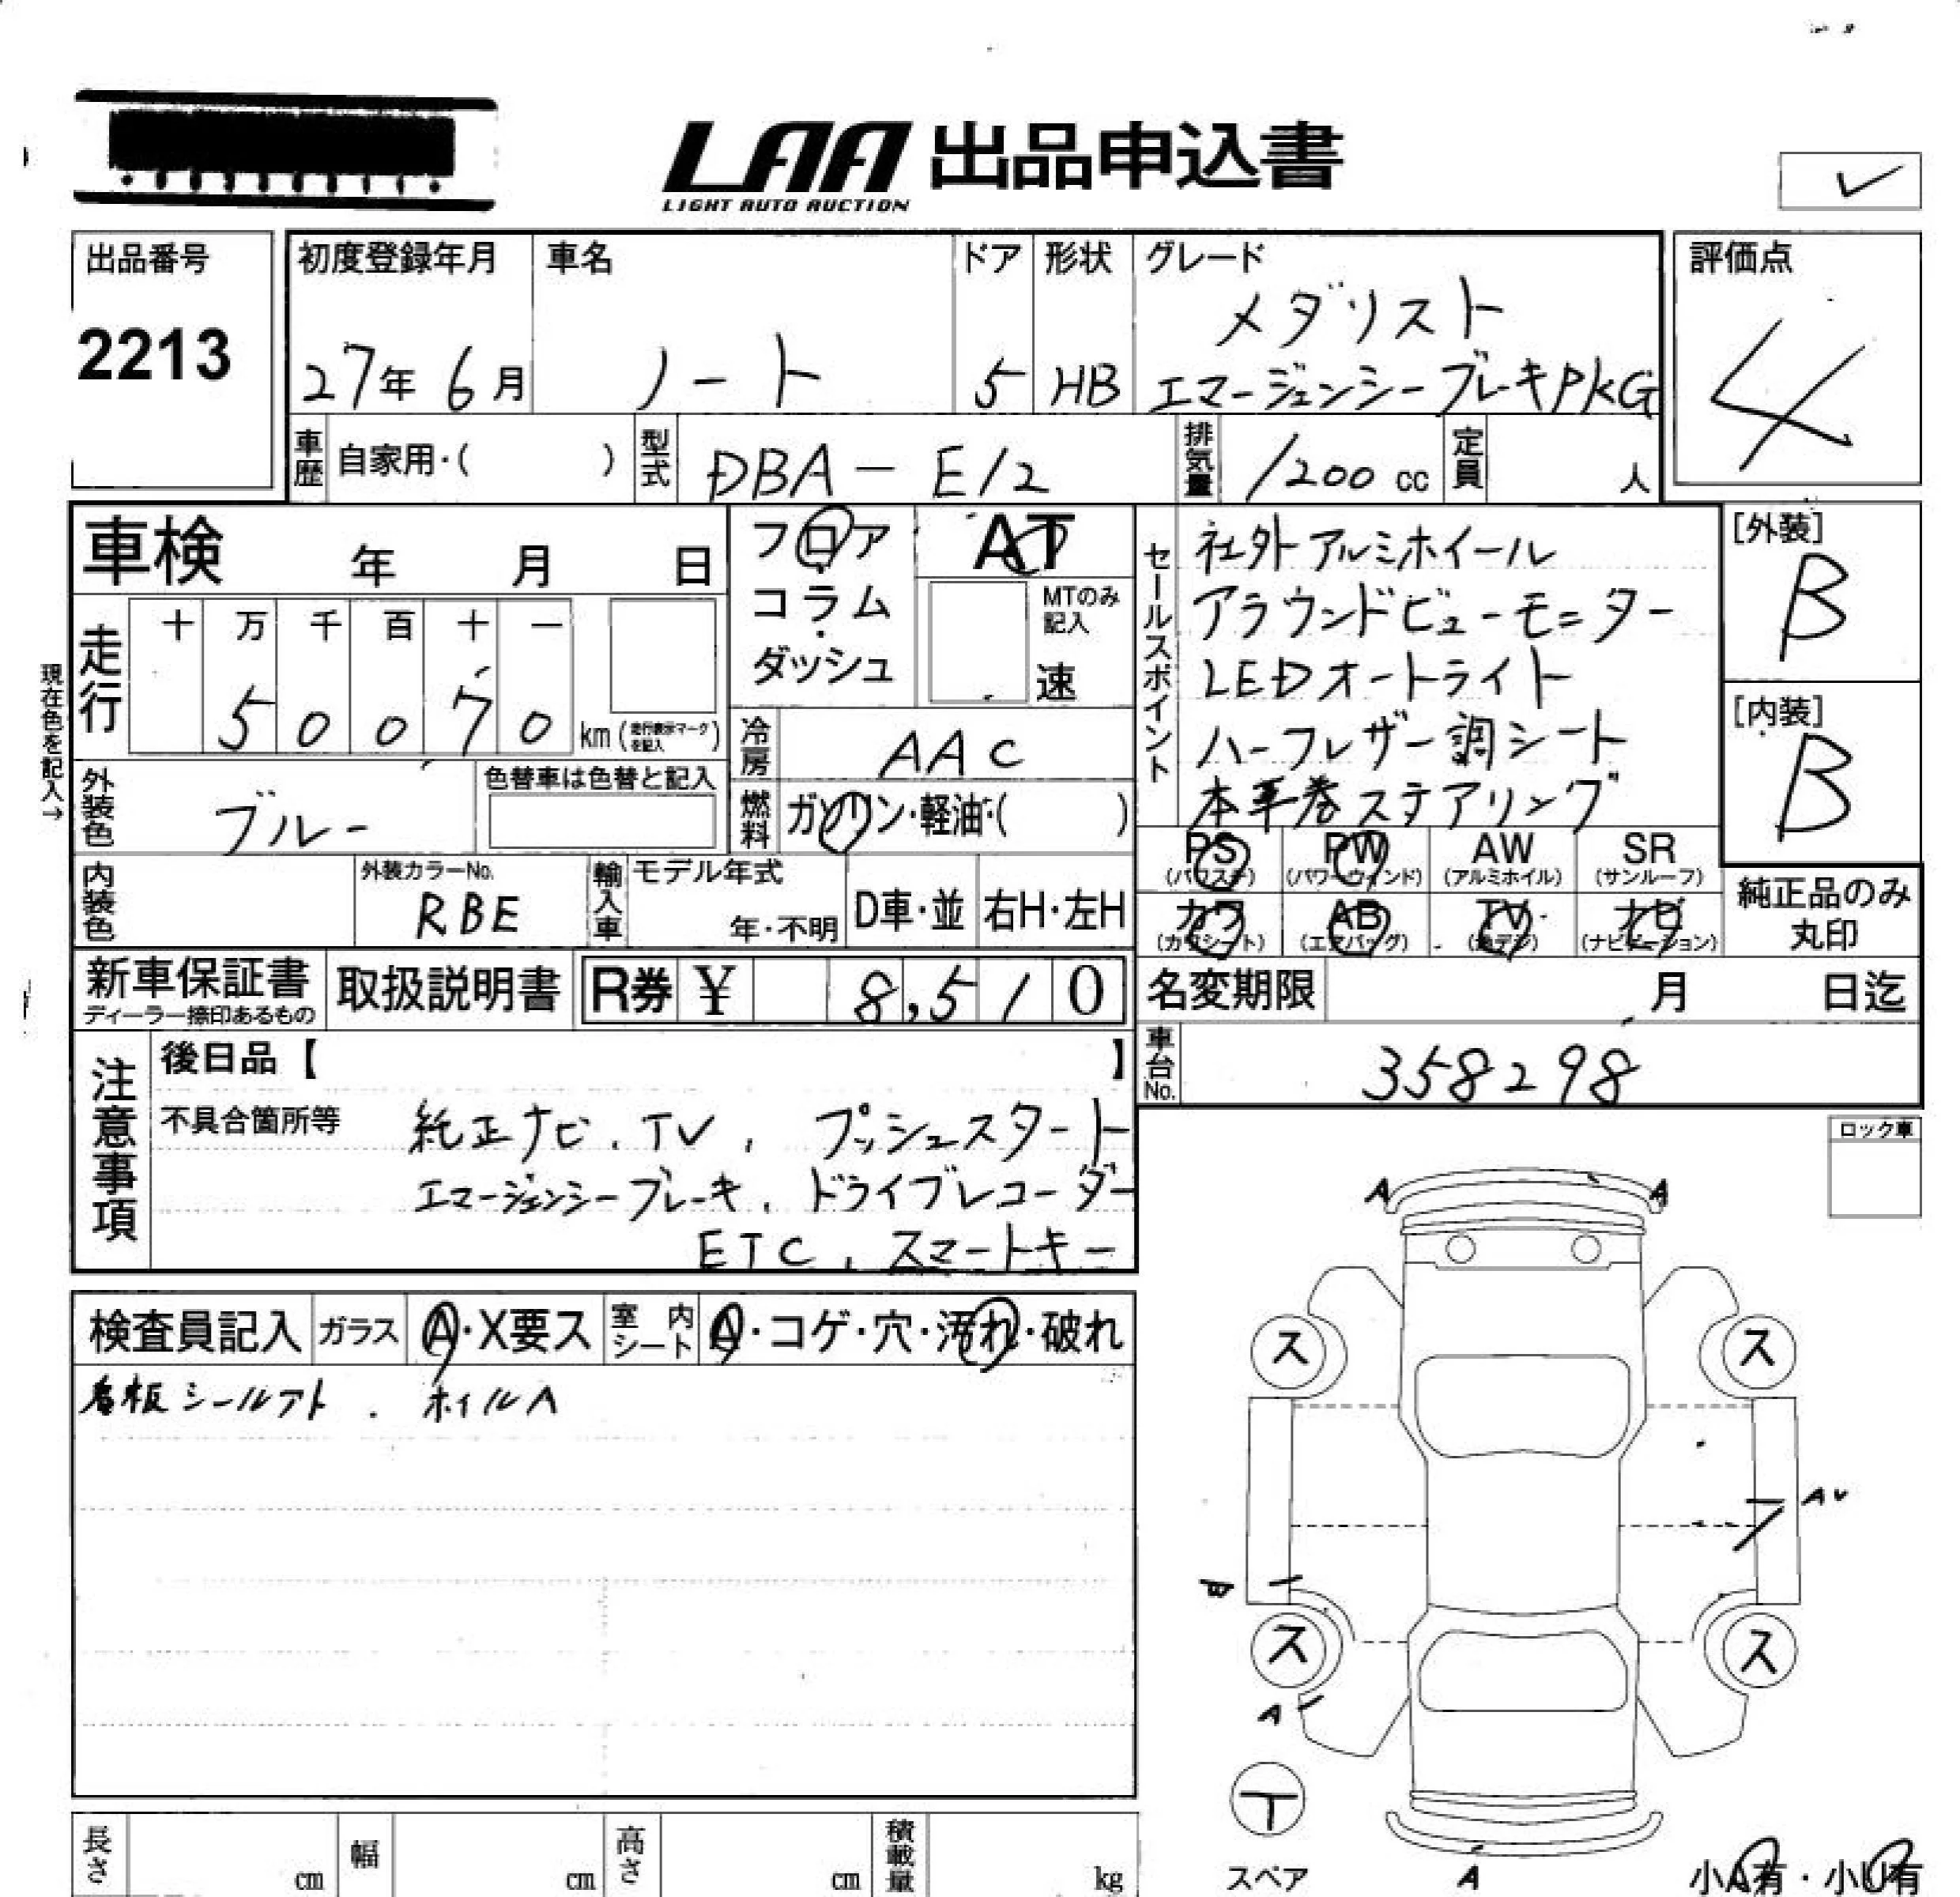 LAA 出品申込書
LIGHT AUTO AUCTION
出品番号
2213
初度登録年月
27年 6月
車名
ノート
ドア
5
形状
HB
グレード
メダリスト
エマージェンシーブレーキPKG
評価点
4
車歴 自家用・( )
型式 DBA-E12
排気量 1200 cc
定員 人
車検 年 月 日
フロア
コラム
ダッシュ
AT
MTのみ記入
速
走行 十 万 千 百 十 一
5 0 0 7 0 km (走行表示マークを記入)
現在色を記入→
冷房 AAC
外装色 ブルー
色替車は色替と記入
燃料 ガソリン・軽油・( )
内装色
外装カラーNo.
RBE
輸入車 モデル年式
年・不明
D車・並
右H・左H
セールスポイント
社外アルミホイール
アラウンドビューモニター
LEDオートライト
ハーフレザー調シート
本革巻ステアリング
[外装]
B
[内装]
B
PS (パワステ)
PW (パワーウィンド)
AW (アルミホイル)
SR (サンルーフ)
カワ (カワシート)
AB (エアバッグ)
TV (地デジ)
ナビ (ナビゲーション)
純正品のみ
丸印
新車保証書
ディーラー捺印あるもの
取扱説明書
R券 ¥ 8,510
名変期限 月 日迄
車台No. 358298
注意事項
後日品【 】
不具合箇所等
純正ナビ、TV、プッシュスタート
エマージェンシーブレーキ、ドライブレコーダー
ETC、スマートキー
ロック車
検査員記入 ガラス A・X要ス 室内シート A・コゲ・穴・汚れ・破れ
看板シールアト . ホイルA
A A
ス ス
AU
ス ス
A
T
スペア
A
小A有・小U有
長さ cm 幅 cm 高さ cm 積載量 kg